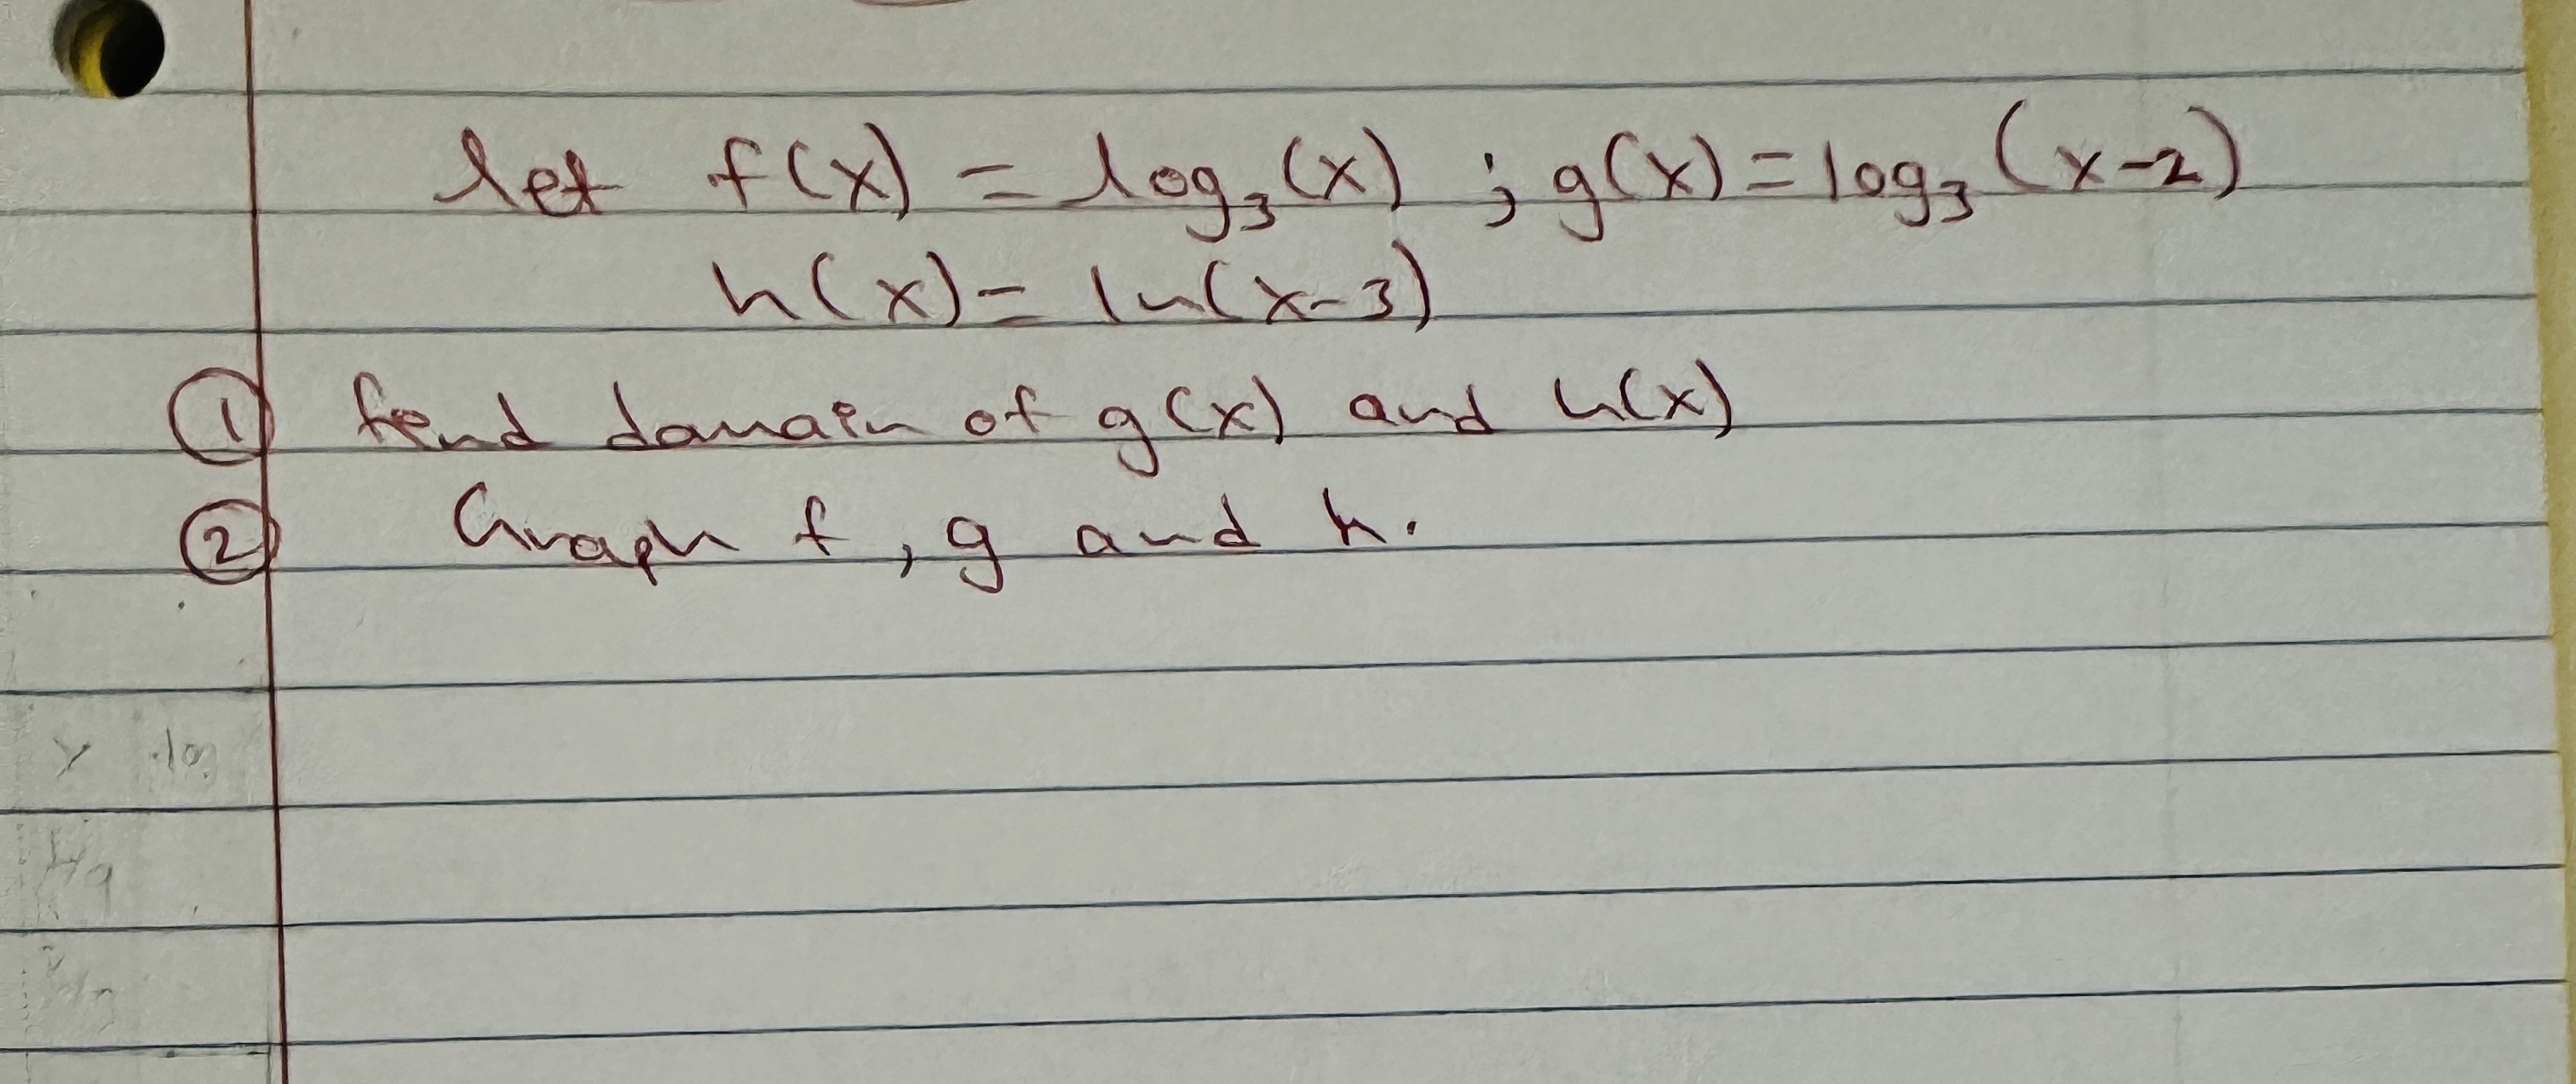 let f(x) = log₃(x) ; g(x) = log₃(x-2)
h(x) = ln(x-3)
① find domain of g(x) and h(x)
② Graph f, g and h.